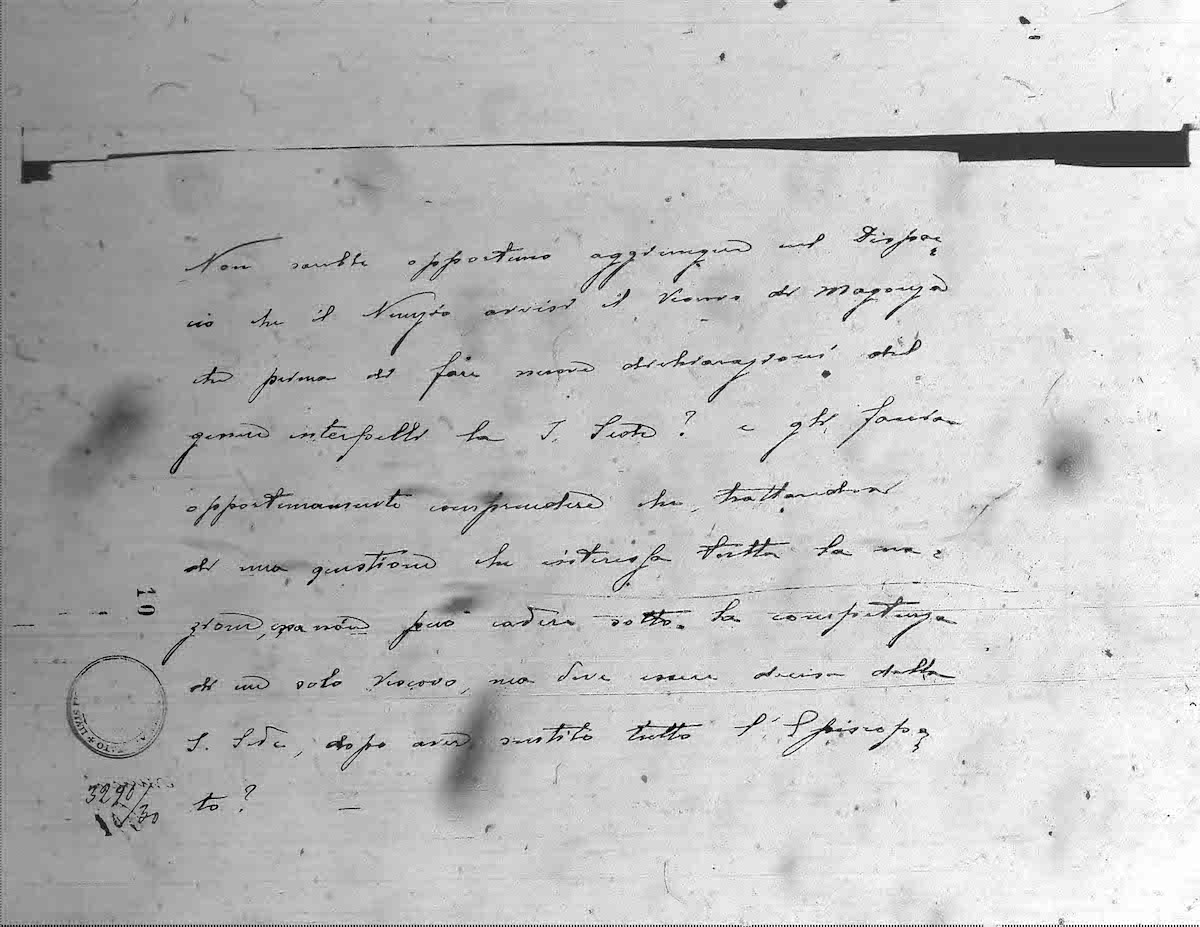 Non sarebbe opportuno aggiungere nel Dispac
cio che il Nunzio avvisi il Vescovo di Magonza
che prima di fare nuove dichiarazioni del
genere interpelli la S. Sede? e gli faccia
opportunamente comprendere che, trattandosi
di una questione che interessa tutta la na=
zione, essa non può cadere sotto la competenza
di un solo Vescovo, ma deve essere decisa dalla
S. Sede, dopo aver sentito tutto l'Episcopa
to? —
10